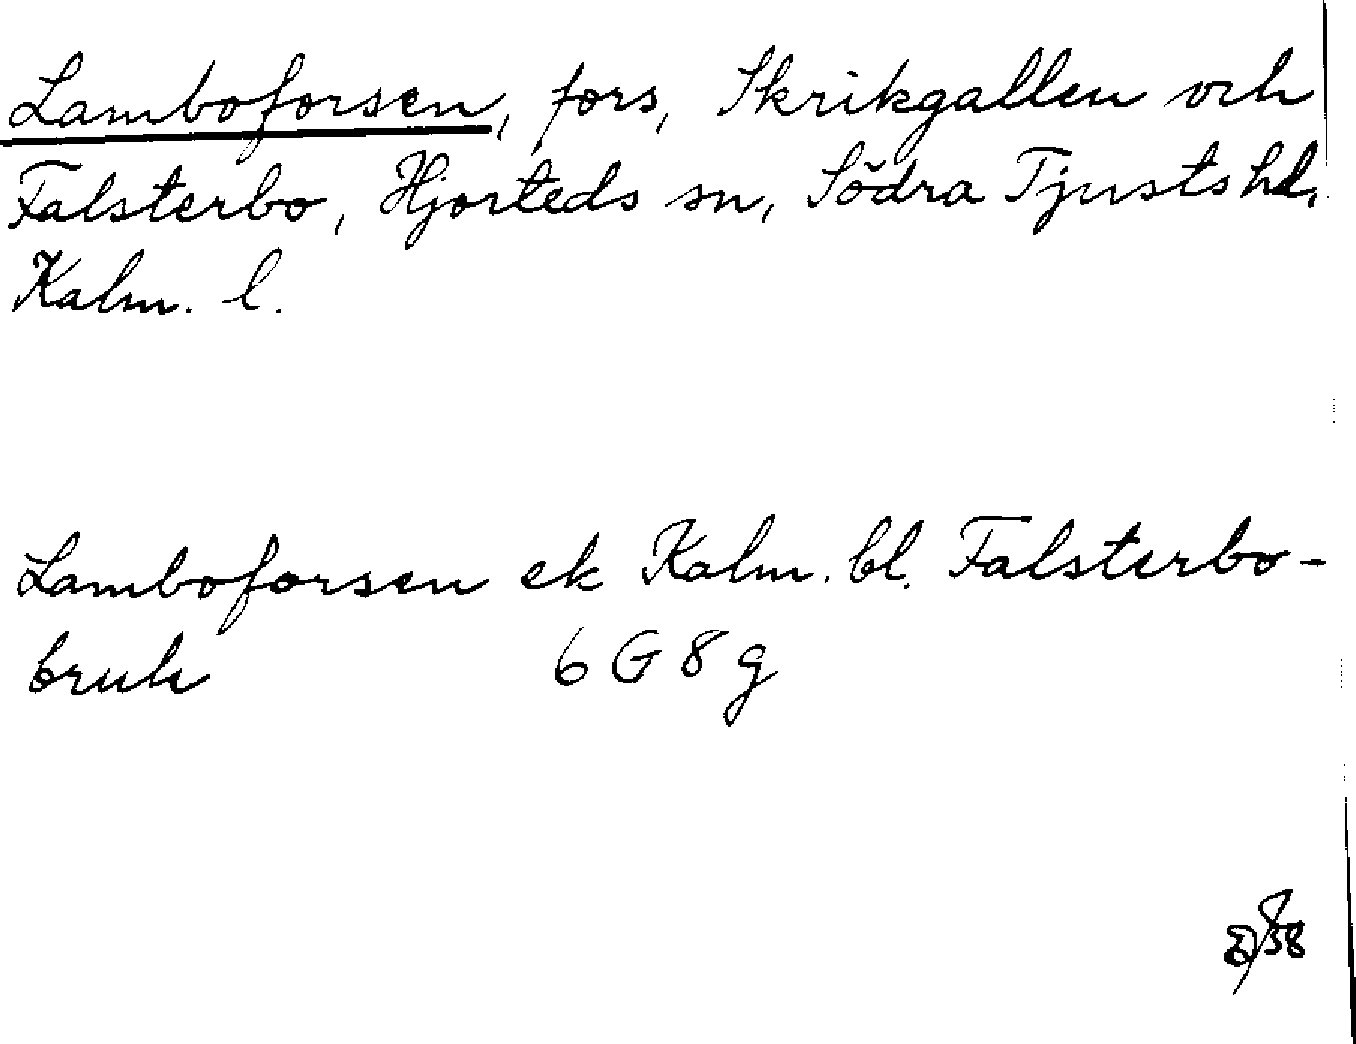 Lamboforsen, fors, Skrikgallen och
Falsterbo, Hjorteds sn, Södra Tjusts hd,
Kalm. l.
Lamboforsen ek Kalm. bl. Falsterbo-
bruk 6 G 8 g
/58